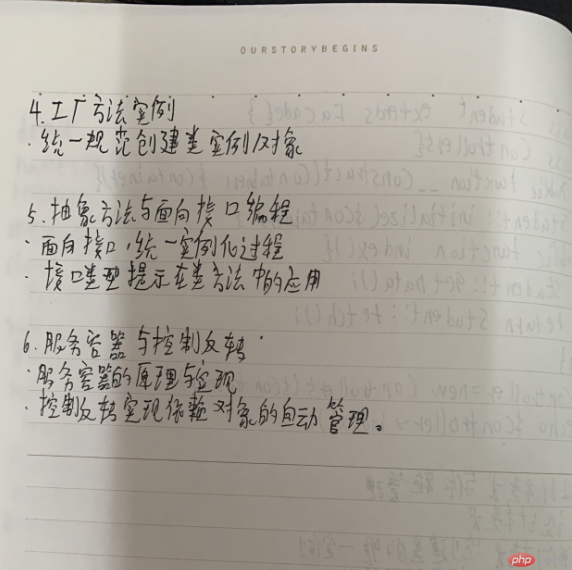 OURSTORYBEGINS
4.工厂方法实例
·统一规范创建类实例/对象
5.抽象方法与面向接口编程
·面向接口,统一实例化过程
·接口类型提示在类方法中的应用
6.服务容器与控制反转
·服务容器的原理与实现
·控制反转实现依赖对象的自动管理。
php